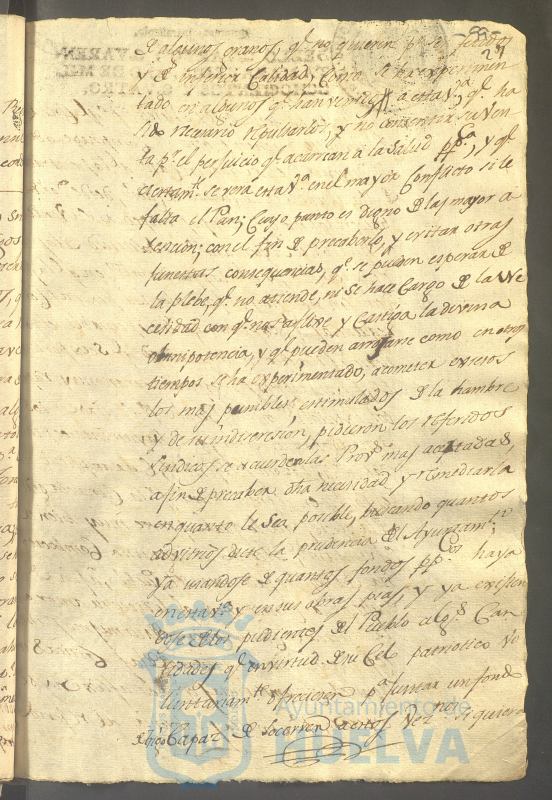 27
de algunos granos, qe. no quieren pr. ser
y de inferior Calidad, como se ha experimen
tado en algunos qe. han venido a esta Va., qe. ha
sido necesario repulsarlos, y no consentir su ven
ta pr. el perjuicio qe. acarrean a la Salud ppca., y qe.
ciertamte. se vera esta Va. en el mayor Conflicto si le
falta el Pan; Cuyo punto es digno de la mayor a
tencion; con el fin de precaberlo, y evitar otras
funestas consequencias, qe. se pueden esperar de
la plebe, qe. no atiende, ni se hace Cargo de la Ne
cesidad con qe. nos aflixe y Castiga la divina
omnipotencia, y qe. pueden arrojarse como en otros
tiempos se ha experimentado, acometer excesos
los mas punibles estimulados de la hambre
y de su indiscrecion, pidieron los referidos
Sindicos se acuerden las Provs. mas acertadas,
a fin de precaber dha necesidad y remediarla
en quanto le sea posible, buscando quantos
advitrios dicte la prudencia del Ayuntamto.,
ya usandose de quantos fondos ppcos. haya
en esta Va. y en sus obras pias, y ya
dose a los pudientes del Pueblo a las Can
tidades qe. en virtud de su Celo patriotico vo
luntariamte. ofrecieren pa. juntar un fondo
Capaz de Socorrer a estos Veznos. si quiera
Ayuntamiento de
HUELVA